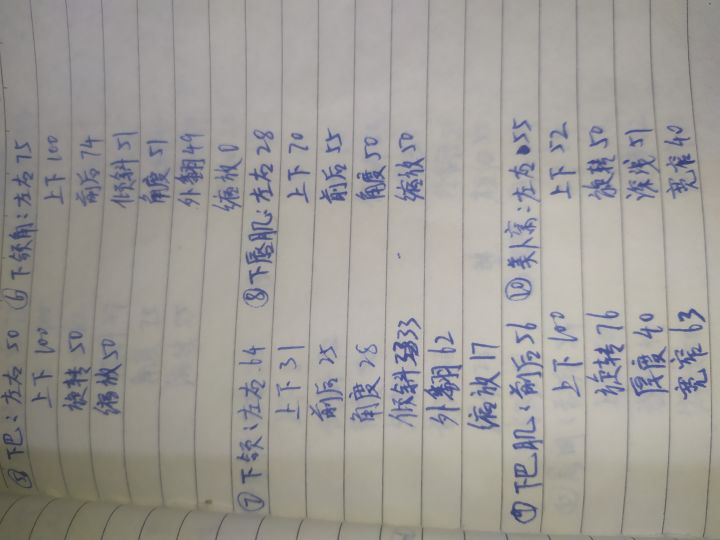 ⑤下巴：左右 50
上下 100
旋转 50
缩放 50
⑥下颌角：左右 75
上下 100
前后 74
倾斜 51
角度 51
外翻 49
缩放 0
⑦下颌：左右 64
上下 31
前后 25
角度 28
倾斜 33
外翻 62
缩放 17
⑧下唇肌：左右 28
上下 70
前后 55
角度 50
缩放 50
⑨下巴肌：前后 56
上下 100
旋转 76
厚度 40
宽窄 63
⑩美人窝：左右 55
上下 52
旋转 50
深浅 51
宽窄 40